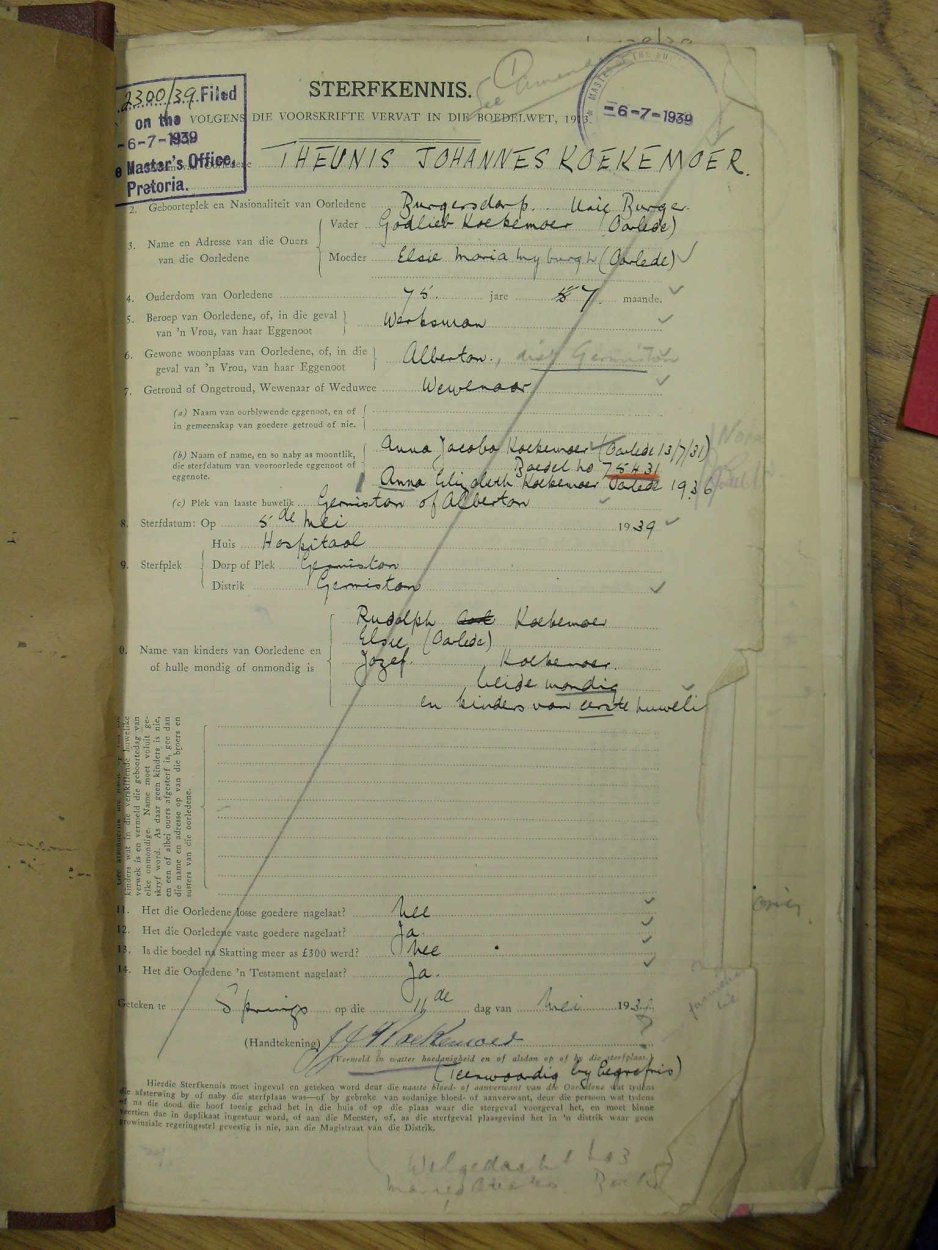 See
MASTER OF THE SU
-6-7-1939
2300/39 Filed
on the
-6-7-1939
Master's Office,
Pretoria.
STERFKENNIS.
VOLGENS DIE VOORSKRIFTE VERVAT IN DIE BOEDELWET, 1913.
THEUNIS JOHANNES KOEKEMOER.
2. Geboorteplek en Nasionaliteit van Oorledene Burgersdorp. Unie Burger.
3. Name en Adresse van die Ouers van die Oorledene
Vader Godlieb Koekemoer (Oorlede)
Moeder Elsie Maria Myburgh (Oorlede)
4. Ouderdom van Oorledene 75 jare 7 maande.
5. Beroep van Oorledene, of, in die geval
van 'n Vrou, van haar Eggenoot Werksman
6. Gewone woonplaas van Oorledene, of, in die
geval van 'n Vrou, van haar Eggenoot Alberton, dist Germiston
7. Getroud of Ongetroud, Wewenaar of Weduwee Wewenaar
(a) Naam van oorblywende eggenoot, en of
in gemeenskap van goedere getroud of nie.
(b) Naam of name, en so naby as moontlik,
die sterfdatum van vooroorlede eggenoot of
eggenote.
Anna Jacoba Koekemoer (Oorlede 13/7/31)
Boedel No 75431
Anna Elizabeth Koekemoer Oorlede 1936
(c) Plek van laaste huwelik Germiston of Alberton
8. Sterfdatum: Op 5de Mei 1939
9. Sterfplek
Huis Hospitaal
Dorp of Plek Germiston
Distrik Germiston
0. Name van kinders van Oorledene en
of hulle mondig of onmondig is
Rudolph Koekemoer
Elsie (Oorlede)
Jozef Koekemoer.
beide mondig
en kinders van eerste huweli
kinders wat in die verskillende huwelike
verwek is en vermeld die geboortedag van
elke onmondige. Name moet voluit ge-
skryf word. As daar geen kinders is nie,
en een of albei ouers afgesterf is, gee dan
die name en adresse op van die broers en
susters van die oorledene.
11. Het die Oorledene losse goedere nagelaat? Nee
12. Het die Oorledene vaste goedere nagelaat? Ja
13. Is die boedel na Skatting meer as £300 werd? Nee
14. Het die Oorledene 'n Testament nagelaat? Ja.
Geteken te Springs op die 11de dag van Mei 1939
(Handtekening) J J Koekemoer
(Vermeld in watter hoedanigheid en of aldan op of by die sterfplaas.)
(Teenwoordig by begrafnis)
Hierdie Sterfkennis moet ingevul en geteken word deur die naaste bloed- of aanverwant van die Oorledene wat tydens
die afsterwing by of naby die sterfplaas was—of by gebreke van sodanige bloed- of aanverwant, deur die persoon wat tydens
of na die dood die hoof toesig gehad het in die huis of op die plaas waar die stergeval voorgeval het, en moet binne
veertien dae in duplikaat ingestuur word, of aan die Meester, of, as die sterfgeval plaasgevind het in 'n distrik waar geen
prowinsiale regeringsstel gevestig is nie, aan die Magistraat van die Distrik.
Welgedacht